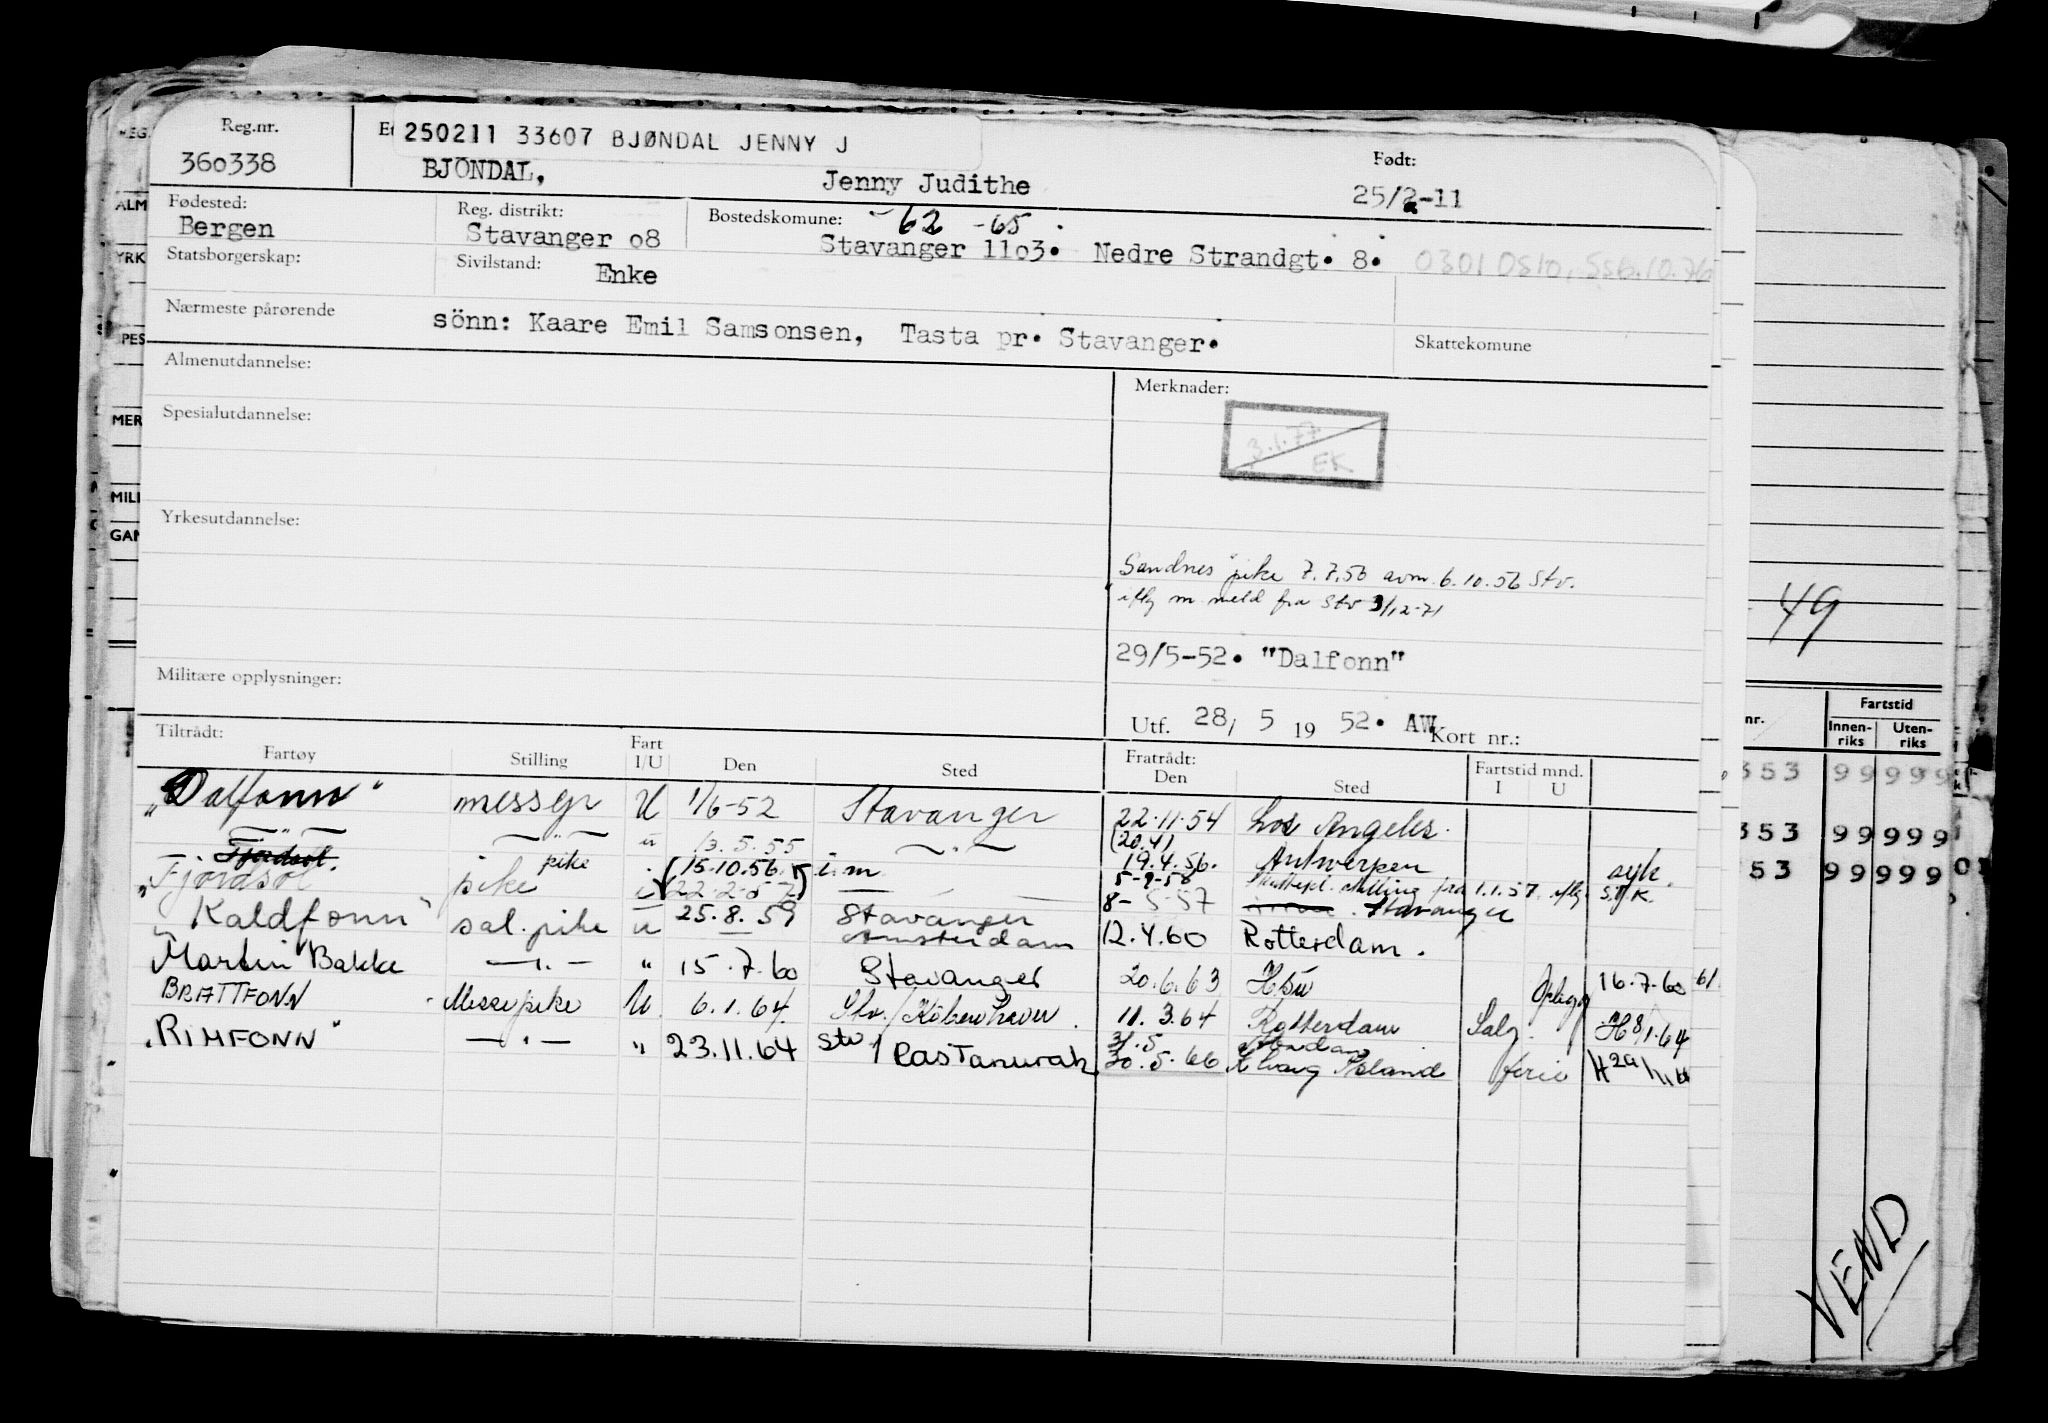 Reg.nr.
360338
250211 33607 BJØNDAL JENNY J
BJÖNDAL, Jenny Judithe
Født:
25/2-11
Fødested:
Bergen
Reg. distrikt:
Stavanger o8
Bostedskomune: -62 -65
Stavanger 11o3. Nedre Strandgt. 8.
0301 Oslo, SSB.10.76
Statsborgerskap:
Sivilstand:
Enke
Nærmeste pårørende
sönn: Kaare Emil Samsonsen, Tasta pr. Stavanger.
Skattekomune
Almenutdannelse:
Merknader:
3.1.77
EK
Spesialutdannelse:
Yrkesutdannelse:
Sandnes" pike 7.7.56 avm. 6.10.56 Stv.
iflg m. meld fra Stv 3/12-71
29/5-52. "Dalfonn"
Militære opplysninger:
Utf. 28/ 5 19 52. AW.
Kort nr.:
Tiltrådt:
Fartøy Stilling Fart I/U Den Sted
Fratrådt:
Den Sted Fartstid mnd. I U
"Dalfonn" messep U 1/6-52 Stavanger 22.11.54 Los Angeles.
— " — — " — u 13.5.55 — " — (20.4) 19.4.56. Antwerpen syk.
Fjordsol. pike (15.10.56. i.m 5-9-58 stilling fra 1.1.57 iflg. S.D.K.
"Fjordsol pike i 22.2.57) 8-5-57 Stavanger
"Kaldfonn" sal.pike u 25.8.59 Stavanger Amsterdam 12.4.60 Rotterdam.
Martin Bakke — " — " 15.7.60 Stavanger 20.6.63 Oplegg 16.7.60 61
BRATTFONN Messepike U 6.1.64 Stv./København 11.3.64 Rotterdam Salg. H8/1.64
"RIMFONN" — " — " 23.11.64 Stv / Ras Tanurah 31.5
30.5.66 ferie
49
nr.
Fartstid
Innen-
riks
Uten-
riks
353 99 999
353 99 999
53 99 999
VEND
REG.
ALM
YRK
SPES
MER
MILI
GAN